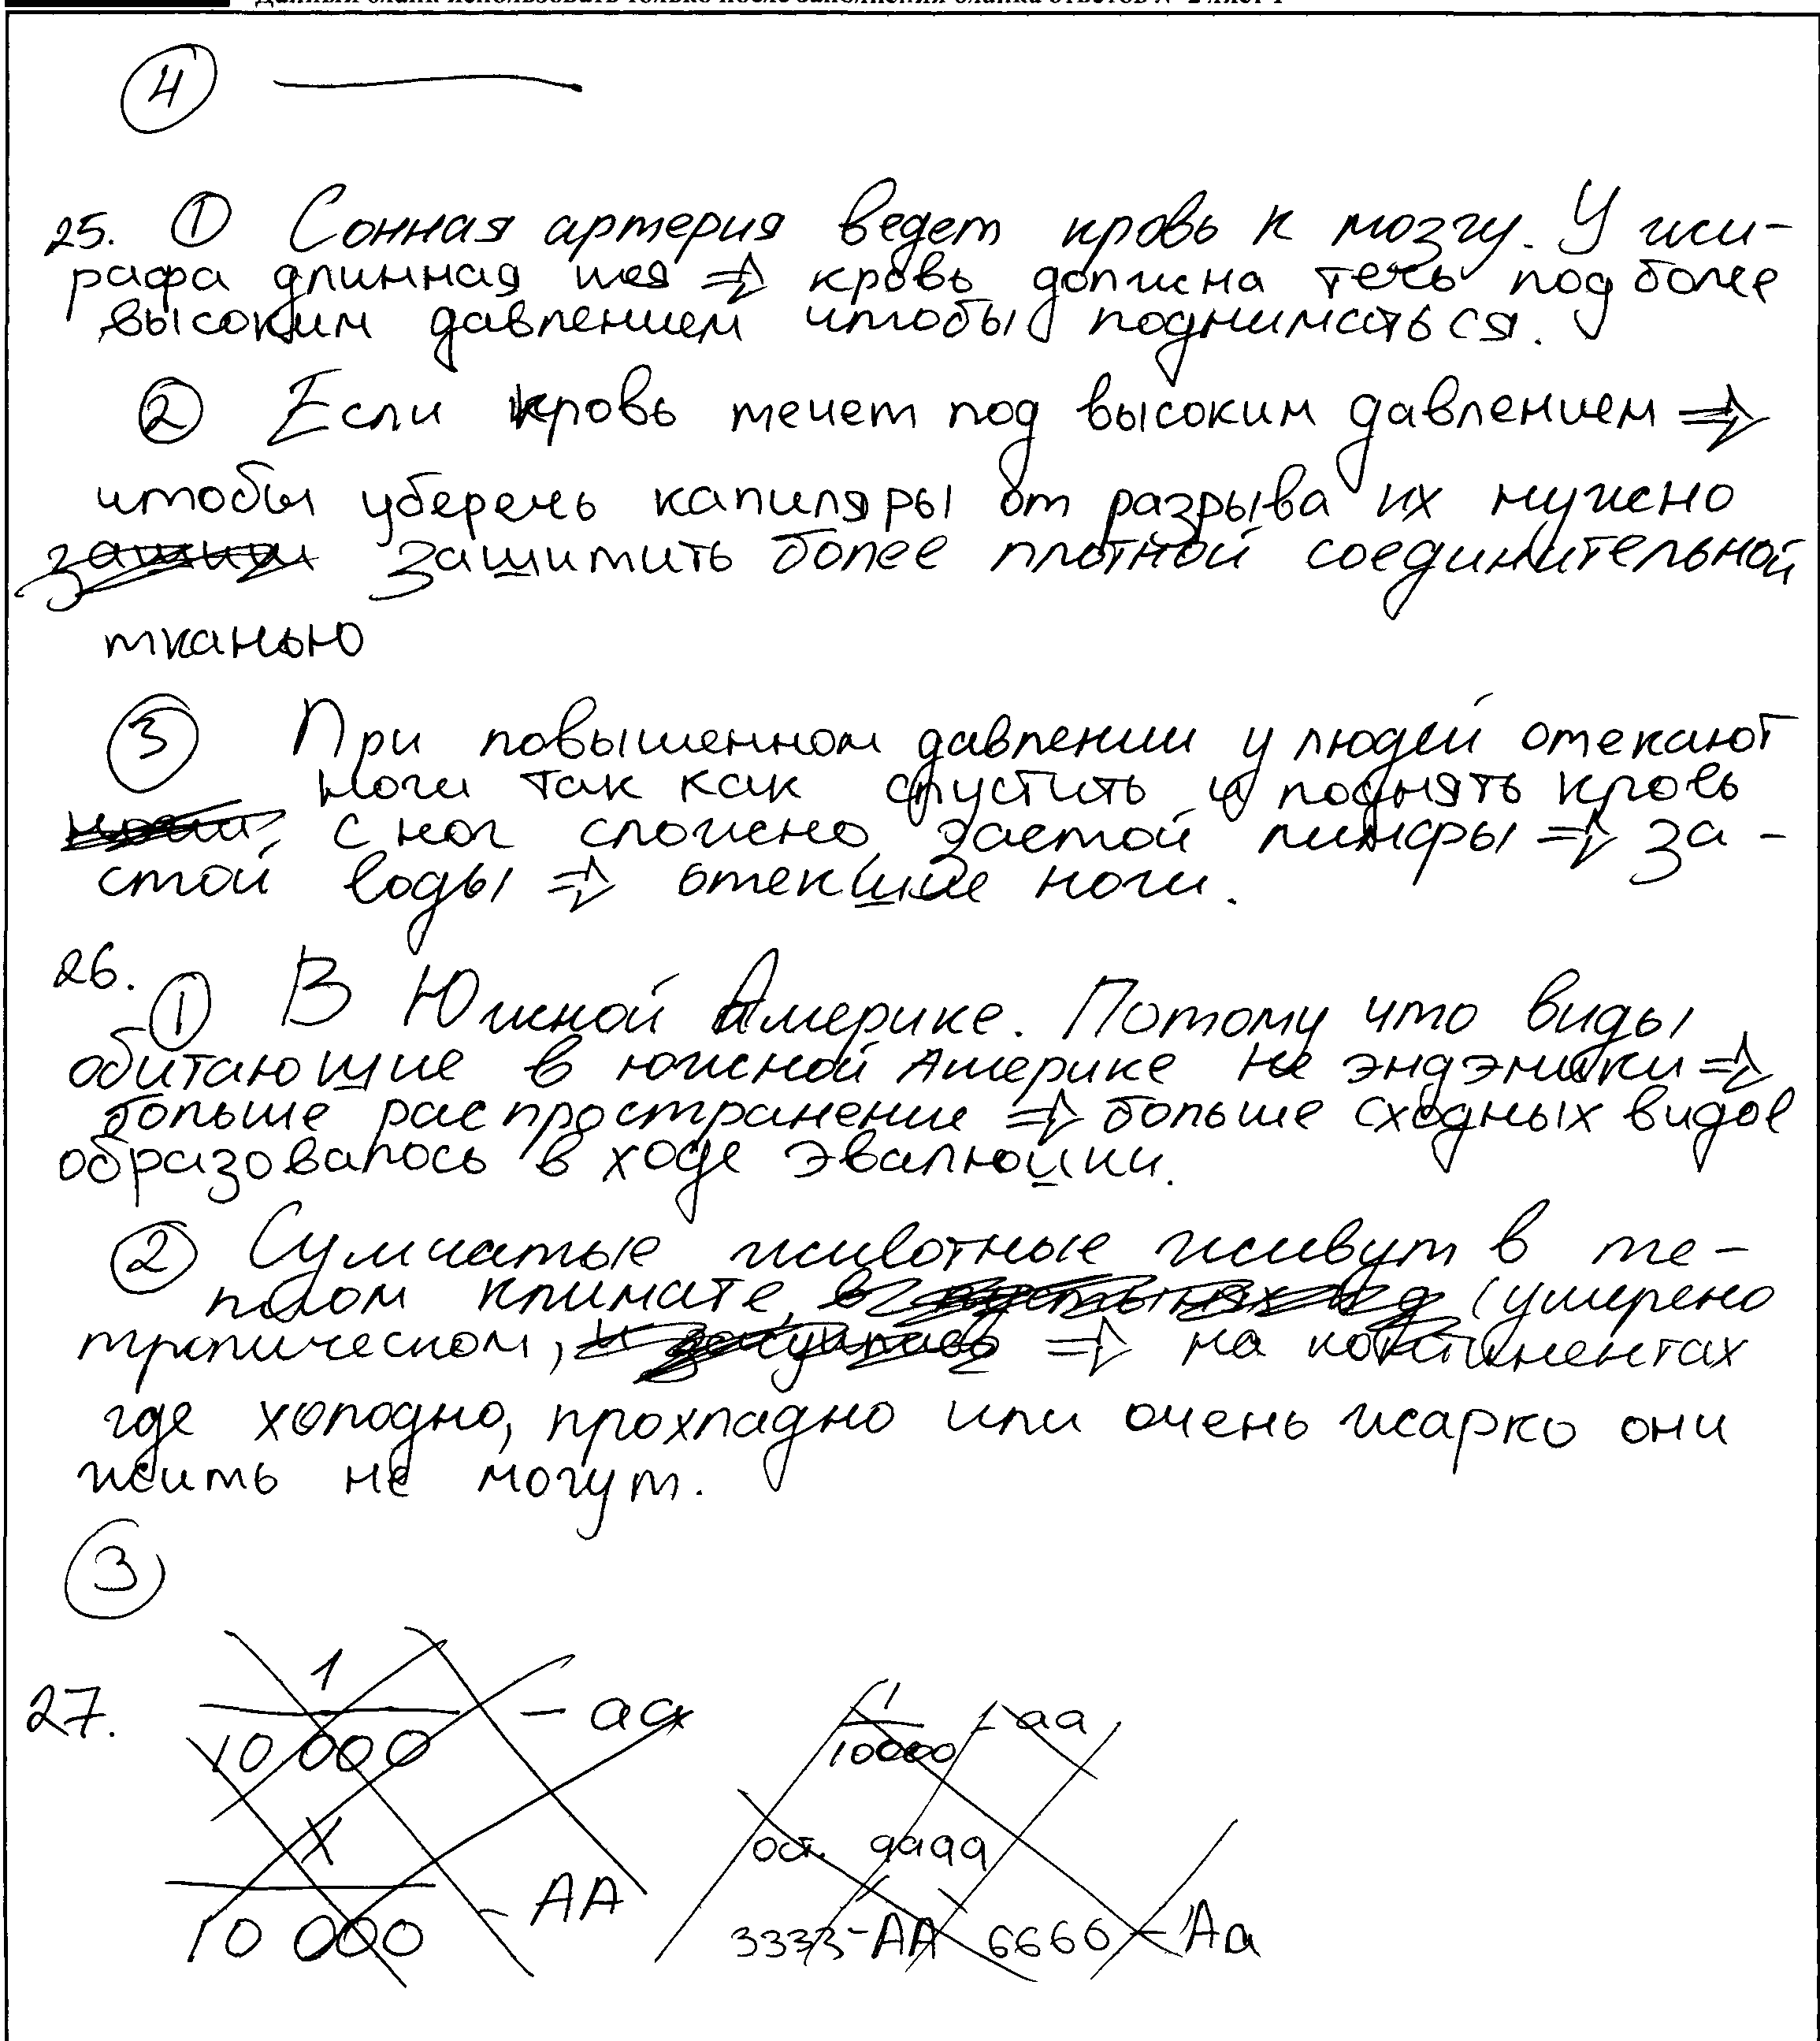 Данный бланк использовать только после заполнения бланка ответов № 2 лист 1
4
25. 1 Сонная артерия ведет кровь к мозгу. У жи-
рафа длинная шея ⇒ кровь должна течь под более
высоким давлением чтобы подниматься.
2 Если кровь течет под высоким давлением ⇒
чтобы уберечь капиляры от разрыва их нужно
защитить более плотной соединительной
тканью
3 При повышенном давлении у людей отекают
ноги так как спустить и поднять кровь
с ног сложно, застой лимфы ⇒ за-
стой воды ⇒ отекшие ноги.
26.
1 В Южной Америке. Потому что виды
обитающие в южной Америке не эндэмики ⇒
больше распространение ⇒ больше сходных видов
образовалось в ходе эвалюции.
2 Сумчатые животные живут в те-
плом климате, (умерено
тропическом, ⇒ на континентах
где холодно, прохладно или очень жарко они
жить не могут.
3
27. 1/10 000 – аа
1/10000 – аа
х/10 000 – АА
ост. 9999
3333 – АА 6666 – Аа